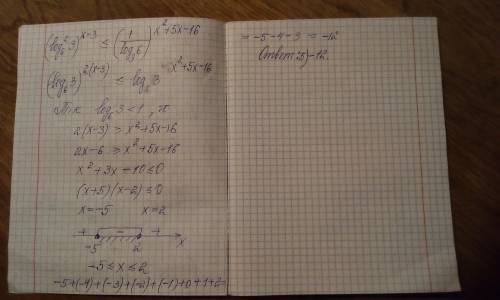 (log₆²3)^(x-3) ≤ (1/log₃6)^(x²+5x-16)
(log₆3)^(2(x-3)) ≤ log₆3^(x²+5x-16)
Т.к. log₆3<1, то
2(x-3) ≥ x²+5x-16
2x-6 ≥ x²+5x-16
x²+3x-10≤0
(x+5)(x-2)≤0
x=-5 x=2
+ - +
-5 2 x
-5≤x≤2
-5+(-4)+(-3)+(-2)+(-1)+0+1+2=
= -5-4-3 = -12
Ответ: 5) -12.